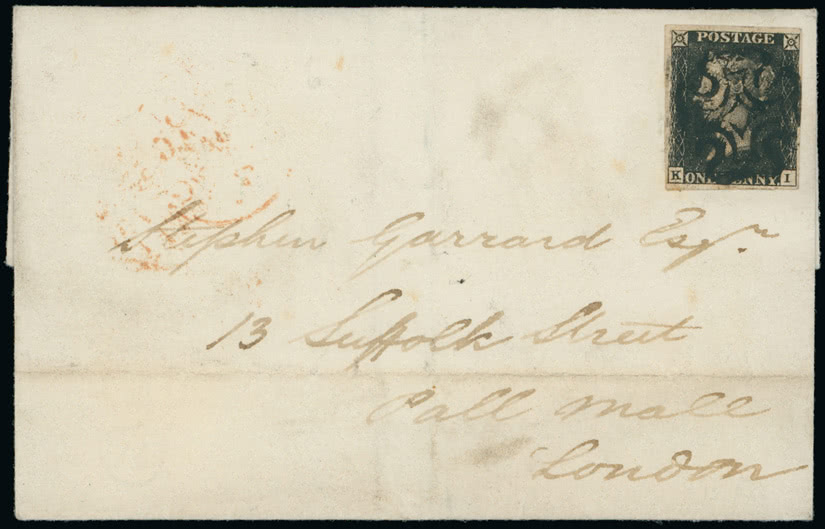 POSTAGE
K ONE PENNY. I
Stephen Garrard Esqr.
13 Suffolk Street
Pall Mall
London